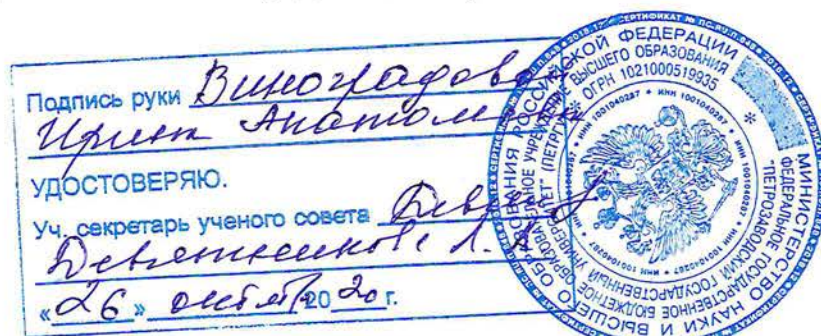 Подпись руки Виноградовой
Ирины Анатольевны
УДОСТОВЕРЯЮ.
Уч. секретарь ученого совета
Девятникова Л. А
«26» октября 2020 г.
МИНИСТЕРСТВО НАУКИ И ВЫСШЕГО ОБРАЗОВАНИЯ РОССИЙСКОЙ ФЕДЕРАЦИИ
ФЕДЕРАЛЬНОЕ ГОСУДАРСТВЕННОЕ БЮДЖЕТНОЕ ОБРАЗОВАТЕЛЬНОЕ УЧРЕЖДЕНИЕ ВЫСШЕГО ОБРАЗОВАНИЯ
"ПЕТРОЗАВОДСКИЙ ГОСУДАРСТВЕННЫЙ УНИВЕРСИТЕТ" (ПЕТРГУ) * ОГРН 1021000519935
* ИНН 1001040287 * ИНН 1001040287 * ИНН 1001040287